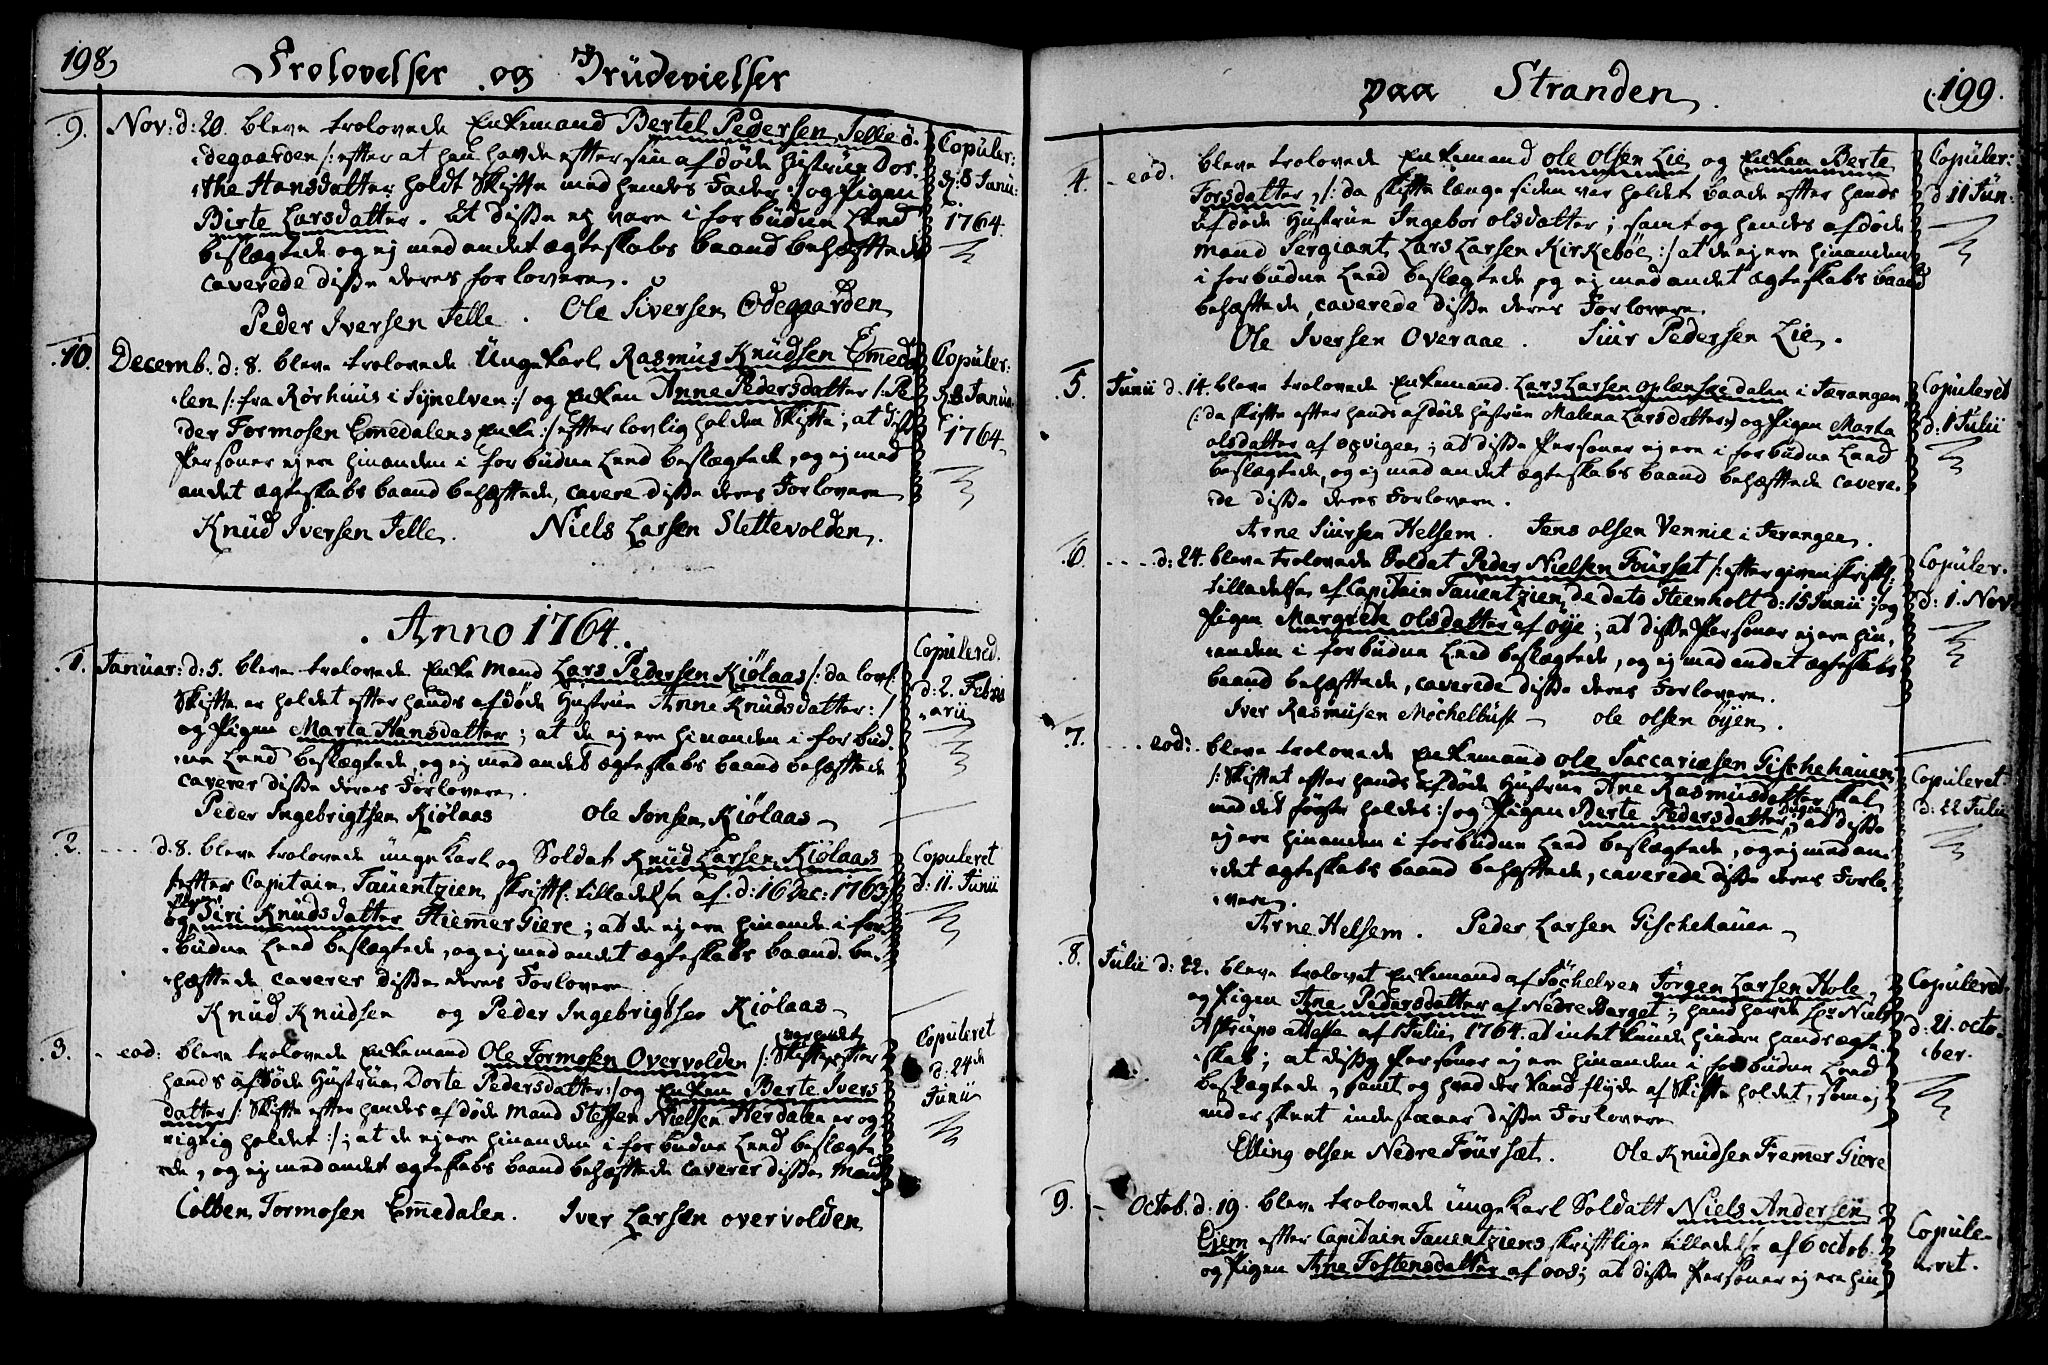 198
Trolovelser og Brüdevielser
9. Nov: d: 20. bleve trolovede Enkemand Bertel Pedersen Jelle ö-
degaarden /: efter at han havde efter sin afdöde Hustrüe Dor-
the Hansdatter holdt Skifte med hendes Fader :/ og Pigen
Birte Larsdatter. At disse ej vare i forbüdne Leed
beslægtede og ej med andet ægteskabs baand behæftede
caverede disse deres forlovere.
Peder Iversen Jelle. Ole Siversen Odegaarden
Copüler:
d: 5 Janü:
1764.
10. Decemb. d: 8. bleve trolovede Ungekarl Rasmus Knüdsen Em̄eda-
len /: fra Rörhuus i Synelven :/ og Enken Anne Pedersdatter /: Pe-
der Tormosen Em̄edalens Enke :/ efter lovlig holden Skifte; at disse
Personer ej ere hinanden i forbüdne Leed beslægtede, og ej med
andet ægteskabs baand behæftede, cavere disse deres Forlovere
Knüd Iversen Jelle. Niels Larsen Slettevolden.
Copüler:
Janüa:
1764.
Anno 1764.
1. Janüar: d: 5. bleve trolovede Enke Mand Lars Pedersen Kiölaas /: da lovl:
Skifte er holdet efter hands afdöde Hustrüe Anne Knüdsdatter :/
og Pigen Marta Hansdatter; at de ej ere hinanden i forbüd-
ne Leed beslægtede, og ej med andet ægteskabs baand behæftede
caverer disse deres Forlovere.
Peder Ingebrigtsen Kiölaas Ole Jonsen Kiölaas
Copülered.
d: 2. Febrü
arii
2. d. 8. bleve trolovede ünge Karl og Soldat Knüd Larsen Kiölaas
/: efter Capitain Tauentzien skriftl: tilladelse af d: 16 Dec: 1763 :/
og Pigen Siri Knüdsdatter Fremer Giere; at de ej ere hinanden i for-
büdne Leed beslægtede, og ej med andet ægteskabs baand be-
hæftede caverer disse deres Forlovere
Knüd Knüdsen og Peder Ingebrigtsen Kiölaas
Copüleret
d: 11. Junii
3. eod: bleve trolovede Enkemand Ole Tormosen Overvolden /: Skifte efter
hands afdöde Hustrüe Dorte Pedersdatter :/ og Enken Berte Ivers
datter /: Skifte efter hendes afdöde Mand Steffen Nielsen Herdalen er og
rigtig holdet :/; at de ej ere hinanden i forbüdne Leed beslægte-
de, og ej med andet ægteskabs baand behæftede caverer disse Mænd
Colben Tormosen Em̄edalen. Iver Larsen overvolden
Copüleret
d: 24de
Junii
paa Stranden.
199.
4. eod. bleve trolovede Enkemand Ole Olsen Lie og Enken Berte
Torsdatter, /: da skifte længe siden var holdet baade efter hands
afdöde Hustrüe Ingebor olsdatter, samt og hendes afdöde
mand Sergiant Lars Larsen Kirkeböe :/ at de ej ere hinanden
i forbüdne Leed beslægtede, og ej med andet ægteskabs baand
behæftede, caverede disse deres Forlovere.
Ole Iversen Overaae. Siür Pedersen Lie.
Copüler:
d 11 Jün:
5. Junii d. 14. bleve trolovede Enkemand Lars Larsen oplænskedalen i Jerangen,
/: da skifte efter hands afdöde Hüstrüe Malena Larsdatter :/ og Pigen Marta
olsdatter af opvigen; at disse Personer ej ere i forbüdne Leed
beslægtede, og ej med andet ægteskabs baand behæftede cavere-
de disse deres Forlovere.
Arne Siursen Helsem. Jens olsen Vennie i Jerangen.
Copüleret
d: 1 Julii
6. d: 24. bleve trolovede Soldat Peder Nielsen Föürsæt /: efter given skriftl:
tilladelse af Capitain Tauentzien de dato Steenholt d: 15 Junii :/ og
Pigen Margrete olsdatter af öye; at disse Personer ej ere hin-
anden i forbüdne Leed beslægtede, og ej med andet ægteskabs
baand behæftede, caverede disse deres Forlovere.
Iver Rasmusen Möchelbust ole olsen öyen.
Copüler.
d: 1. Nov.
7. eod: bleve trolovede Enkemand ole Saccariæsen Gischehauen
/: Skiftet efter hands afdöde Hustrue Ane Rasmüsdatter skal
med det förste holdes :/ og Pigen Berte Pedersdatter; at disse
ej ere hinanden i forbüdne Leed beslægtede, og ej med an-
det ægteskabs baand behæftede, caverede disse deres Forlo-
vere.
Arne Helsem. Peder Larsen Gischehauen
Copüleret
d: 22 Julii
8. Julii d: 22. bleve trolovet Enkemand af Söchelven Jörgen Larsen Hole,
og Pigen Ane Pedersdatter af Nedre Berget; hand havde Hr Niels
Astrups attest af 1 Julii 1764. at intet kunde hindre hands ægte-
skab; at disse Personer ej ere hinanden i forbüdne Leed
beslægtede, samt og hvad der kand flyde af Skifte holdet, som ej
anderskent indestaaer disse Forlovere
Elling olsen Nedre Föürsæt. Ole Knüdsen Frem̄er Giere
Copüleret
d: 21. octo-
ber.
9. Octob. d: 19. bleve trolovede üngekarl Soldatt Niels Andersen
Eiem efter Capitain Tauentziens skriftlige tilladelse af 6 octob.
og Pigen Ane Tostensdatter af oos; at disse Personer ej ere hin
Copüle-
ret.